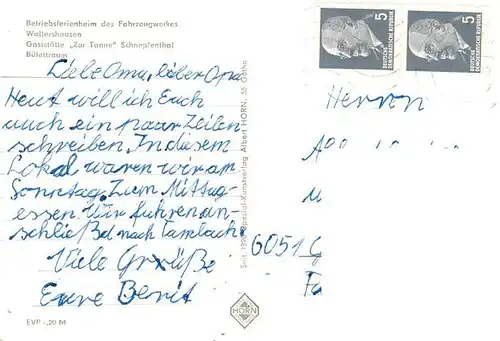 Betriebsferienheim des Fahrzeugwerkes
Waltershausen
Gaststätte „Zur Tanne" Schnepfenthal
Büfettraum
Liebe Oma, lieber Opa
Heut will ich Euch
auch ein paar Zeilen
schreiben. In diesem
Lokal waren wir am
Sonntag zum Mittag-
essen. Wir fuhren an-
schließend nach Tambach.
Viele Grüße
Eure Berit
EVP -,20 M
Seit 1898 Spezial-Kunstverlag Albert HORN, 58 Gotha
HORN
5
DEUTSCHE
DEMOKRATISCHE
REPUBLIK
5
DEUTSCHE
DEMOKRATISCHE
REPUBLIK
Herrn
6051